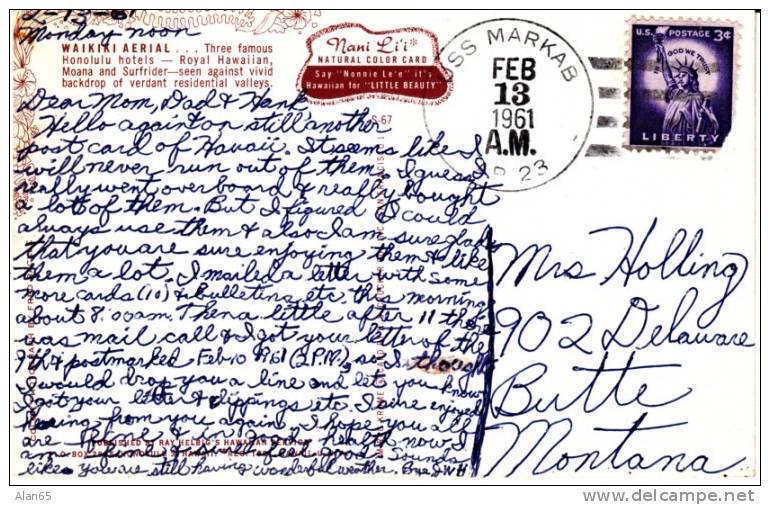 2-13-61
Monday noon
WAIKIKI AERIAL . . . Three famous
Honolulu hotels — Royal Hawaiian,
Moana and Surfrider—seen against vivid
backdrop of verdant residential valleys.
Nani Li'i*
NATURAL COLOR CARD
Say "Nonnie Le'e" it's
Hawaiian for "LITTLE BEAUTY"
S-67
USS MARKAB
FEB
13
1961
A.M.
AR 23
U.S. POSTAGE 3¢
IN GOD WE TRUST
LIBERTY
Dear Mom, Dad & Hank
Hello again on still another
post card of Hawaii. It seems like I
will never run out of them. I guess I
really went overboard & really bought
a lot of them. But I figured I could
always use them & also I am sure glad
that you are sure enjoying them & like
them a lot. I mailed a letter with some
more cards (10) & bulletins etc this morning
about 8:00am. Then a little after 11 there
was mail call & I got your letter of the
9th postmarked Feb 10 1961 (2 P.M.) so I thought
I would drop you a line and let you know
I got your letter & clippings etc. I sure enjoyed
hearing from you again. I hope you all
are & in health now. I
am feel good. Sounds
like you are still having wonderful weather. Bye
PUBLISHED BY RAY HELBIG'S HAWAIIAN SERVICE
Mrs Holling
902 Delaware
Butte
Montana
Alan65
http://www.delcampe.net